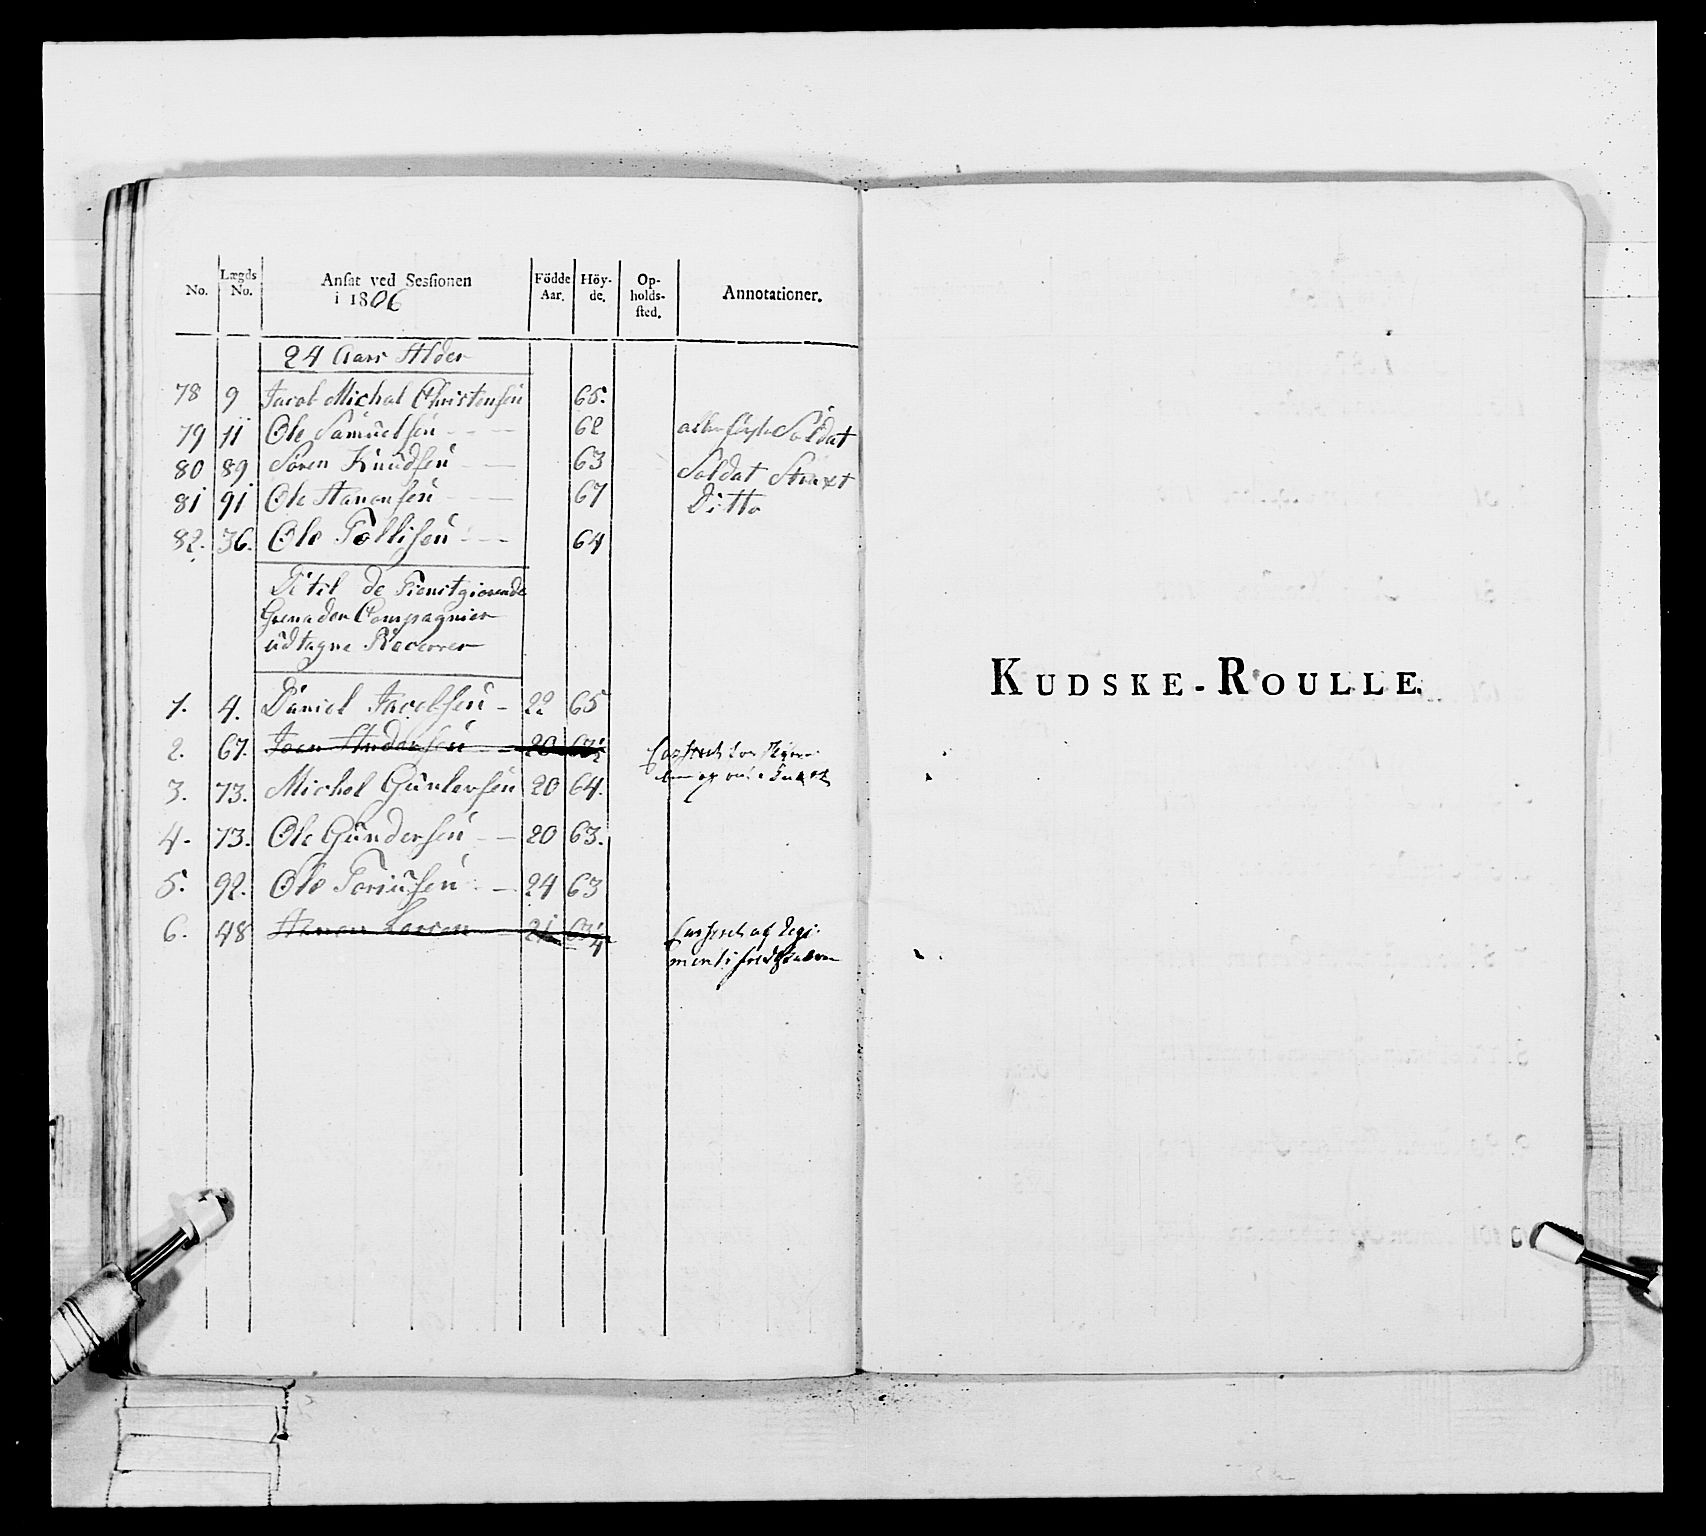 No. Lægds No. Ansat ved Sessionen i 1806 Födde Aar. Höy-de. Op-holds-sted. Annotationer.
24 Aars Alder
78 9 Jacob Michal Christensen 65.
79 11 Ole Samuelsen 62 Soldat
80 89 Søren Knudsen 63 Soldat Straxt
81 91 Ole Hansen 67 Ditto
82. 36. Ole Tollisen 64
De til de Tienstgiørende
Grenadeer Compagnier
udtagne Recerver
1. 4. Daniel Jacobsen 22 65
2. 67. Andersen 20 63½
3. 73. Michel Gundersen 20 64.
4. 73. Ole Gundersen 20 63.
5. 92. Ole Toriusen 24 63
6. 48 Larsen 21 63¼ Casseret af Regi-
ments
KUDSKE-ROULLE.